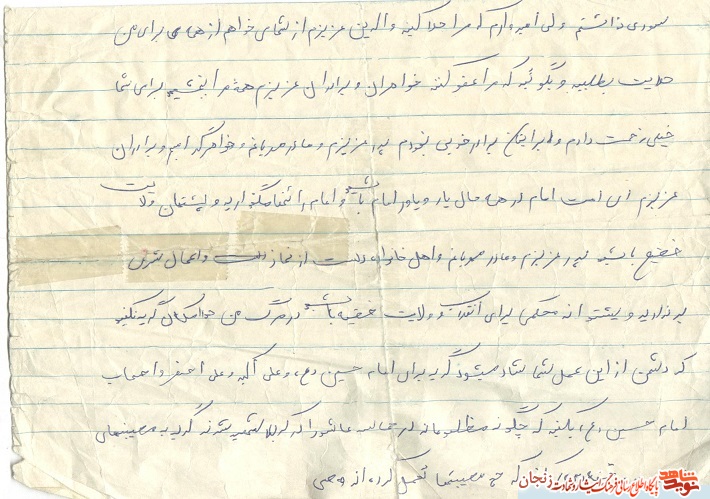 سودی نداشتم ولی امیدوارم که مرا حلال کنید والدین عزیزم از شما می خواهم از همه برای من
حلالیت بطلبید و بگوئید که مرا عفو کنند خواهران و برادران عزیزم همه مرا ببخشید برای شما
خیلی زحمت دادم ولی برادر خوبی نبودم پدر عزیزم و مادر مهربانم و خواهر گرامیم و برادران
عزیزم ای امت امام در همه حال یار و یاور امام باشید و امام را تنها نگذارید و پشتیبان ولایت
فقیه باشید پدر عزیزم و مادر مهربانم و اهل خانواده دست از نماز و اعمال شرعی
برندارید و پشتوانه محکمی برای انقلاب و ولایت فقیه باشید در مرگ من گریه نکنید
که دشمن از این عمل شما شاد میشود گریه برای امام حسین (ع) و علی اکبر و علی اصغر و اصحاب
امام حسین (ع) بکنید که چگونه مظلومانه در عاشورا در کربلا شهید شدند گریه به مصیبتهای
که چه مصیبتها تحمل کرده اند
نوید شاهد
پایگاه اطلاع رسانی فرهنگ ایثار و شهادت زنجان